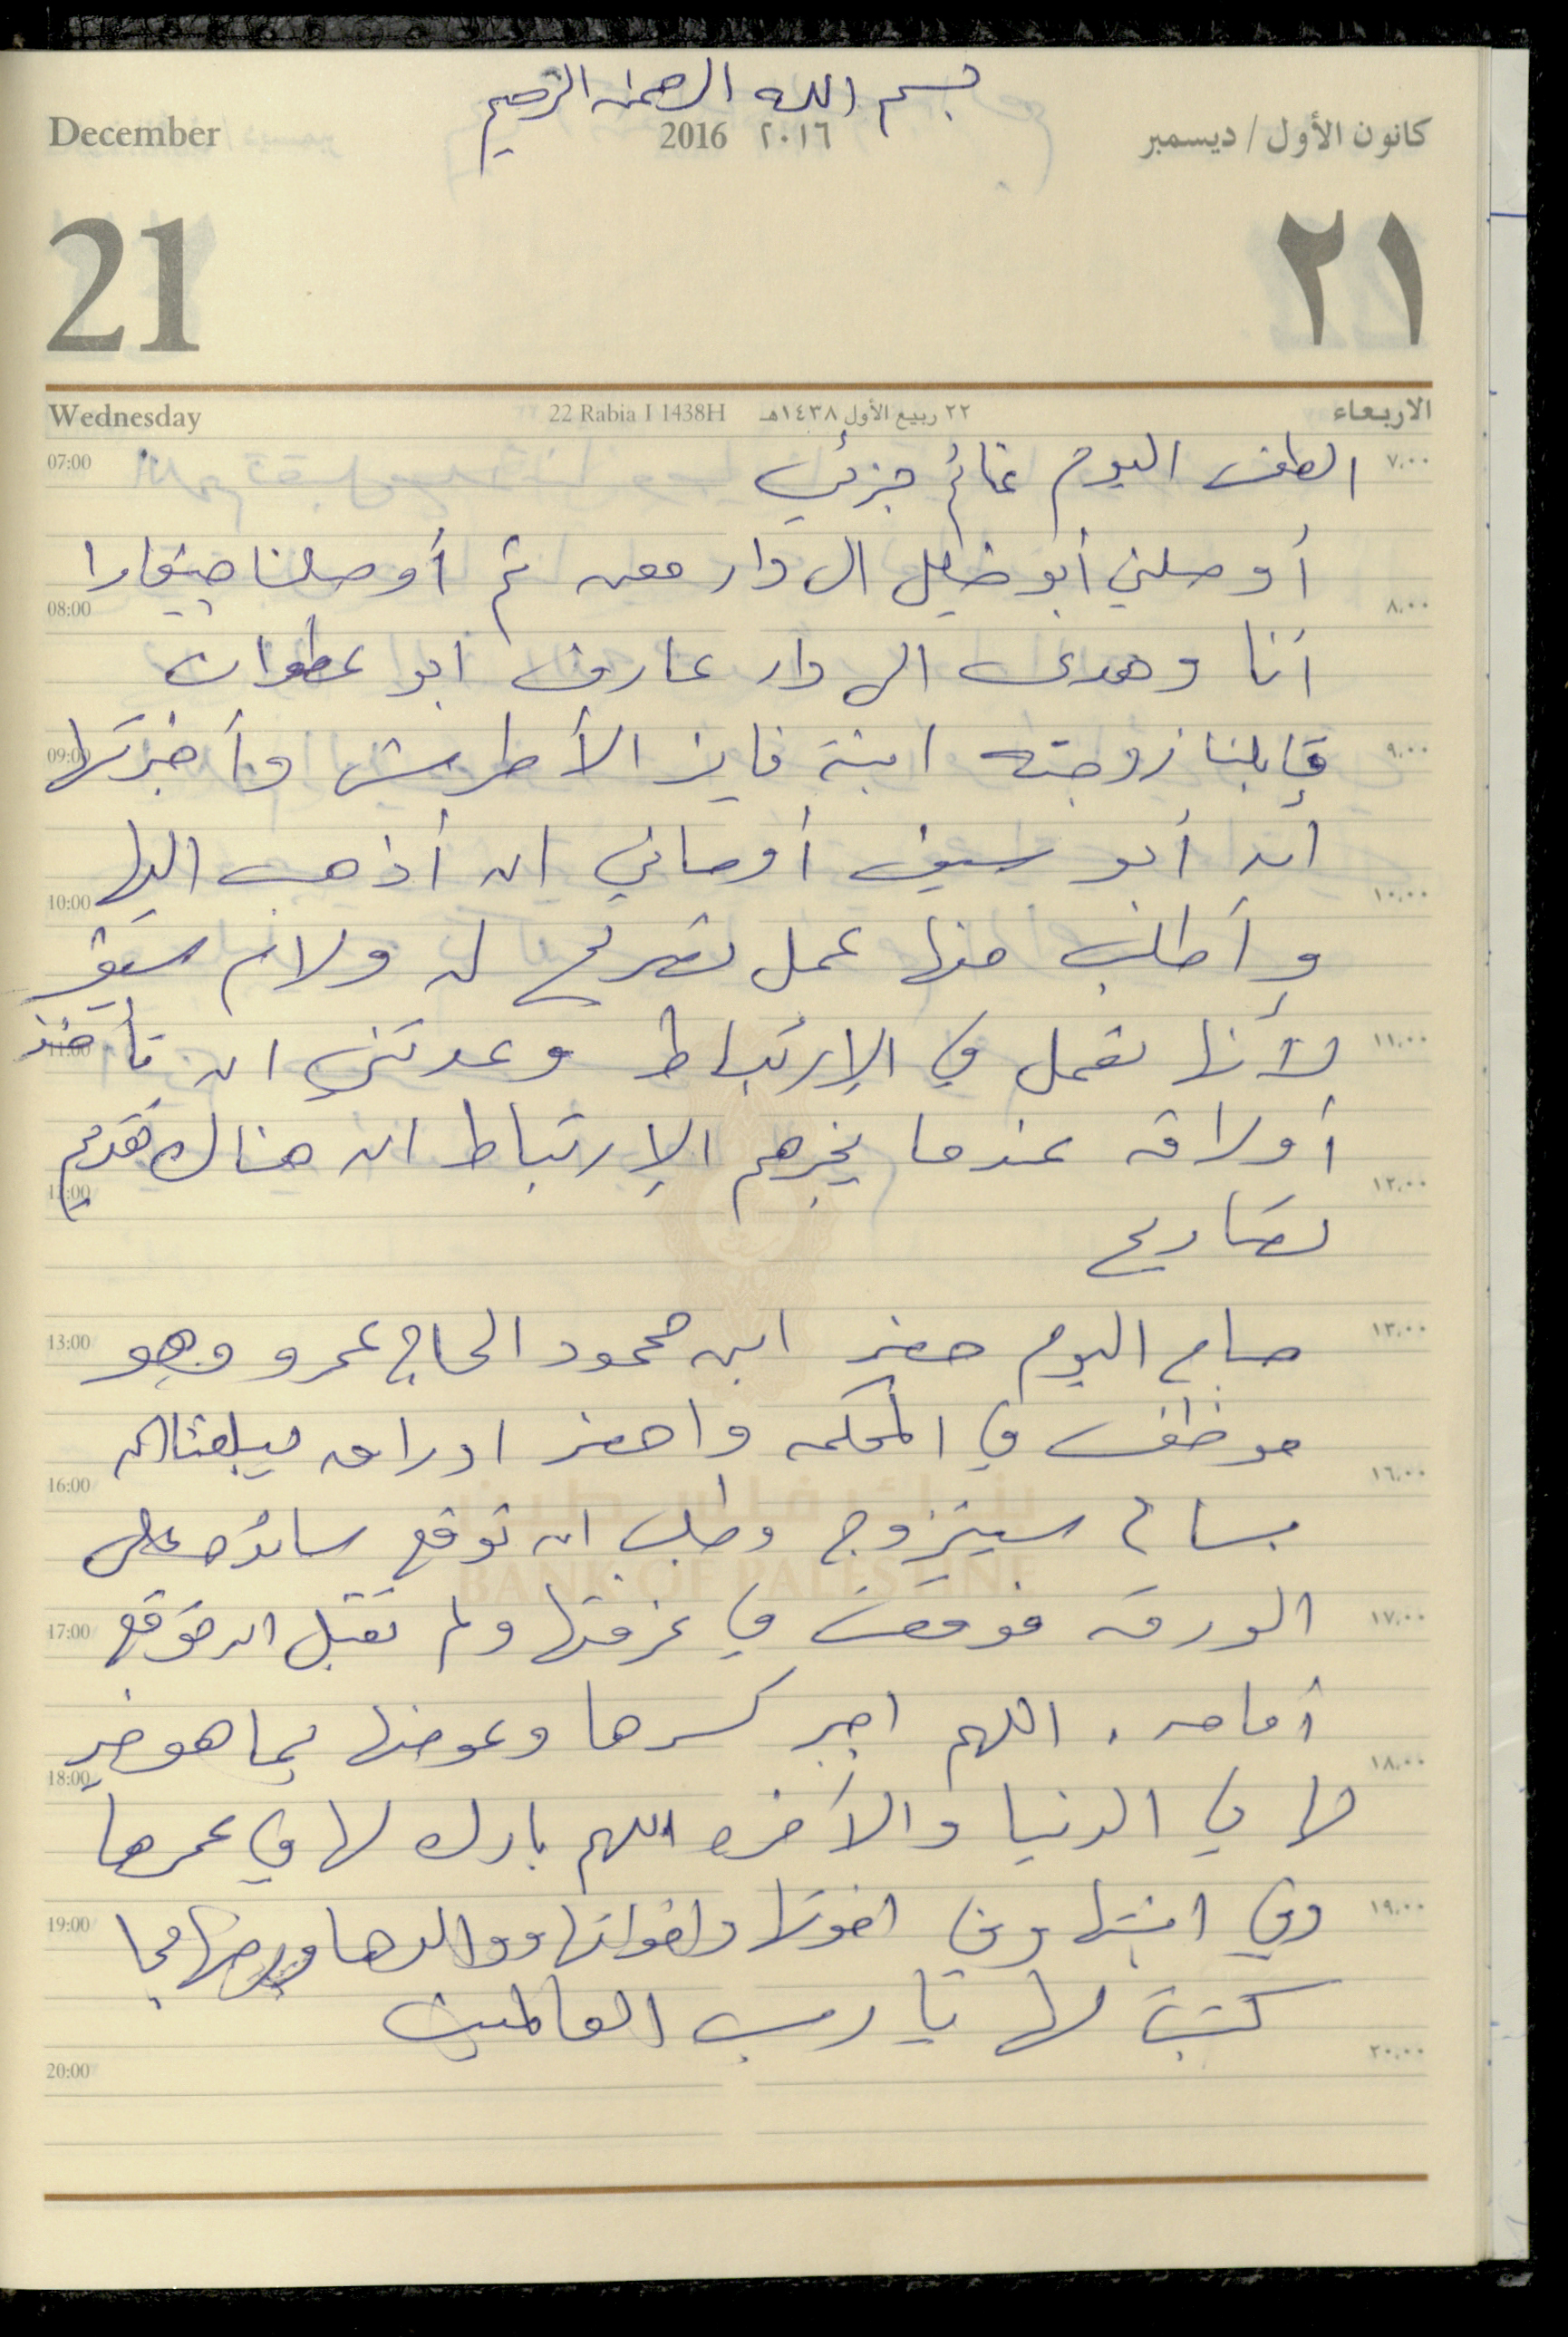 بسم الله الرحمن الرحيم
December 2016 ٢٠١٦ كانون الأول / ديسمبر
21 ٢١
Wednesday 22 Rabia I 1438H ٢٢ ربيع الأول ١٤٣٨هـ الاربعاء
07:00 الطقس اليوم غائم جزئي ٧،٠٠
أوصلني أبو خليل الى دار معن ثم أوصلنا
08:00 ٨،٠٠
أنا وهدى الى دار عارف ابو عطوان
09:00 قابلنا زوجته ابنة فايز الأطرش وأخبرتها ٩،٠٠
أن أبو سيف أوصاني ان أذهب اليها
10:00 ١٠،٠٠
وأطلب منها عمل تصريح له ولام سيف
11:00 لأنها تعمل في الإرتباط وعدتني ان تأخذ ١١،٠٠
أوراقه عندما يخبرهم الإرتباط ان هناك تقديم
12:00 ١٢،٠٠
تصاريح
13:00 صباح اليوم حضر ابن محمود الحاج عمرو وهو ١٣،٠٠
موظف في المحكمه واحضر اوراق ان
16:00 ١٦،٠٠
بسام سيتزوج وطلب ان توقع سائده على
بنك فلسطين
BANK OF PALESTINE
17:00 الورقه فوقعت في غرفتها ولم تقبل ان توقع ١٧،٠٠
أمامه. اللهم اجبر كسرها وعوضها بما هو خير
18:00 ١٨،٠٠
لها في الدنيا والآخره اللهم بارك لها في عمرها
19:00 وفي ابنتها وفي اخوتها واخواتها ووالدها بما ١٩،٠٠
كتبت لها يا رب العالمين
20:00 ٢٠،٠٠